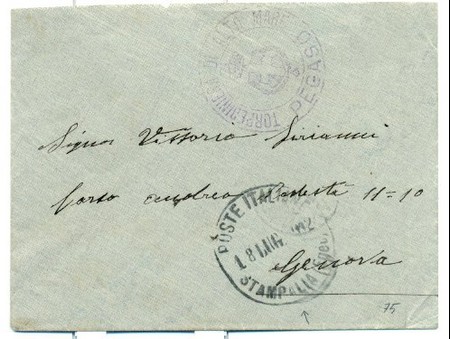 TORPEDINIERA D'ALTO MARE PEGASO
Signor Vittorio
Corso Andrea Podestà 11=10
POSTE ITALIANE
18 LUG 912
STAMPALIA (Egeo)
Genova
75